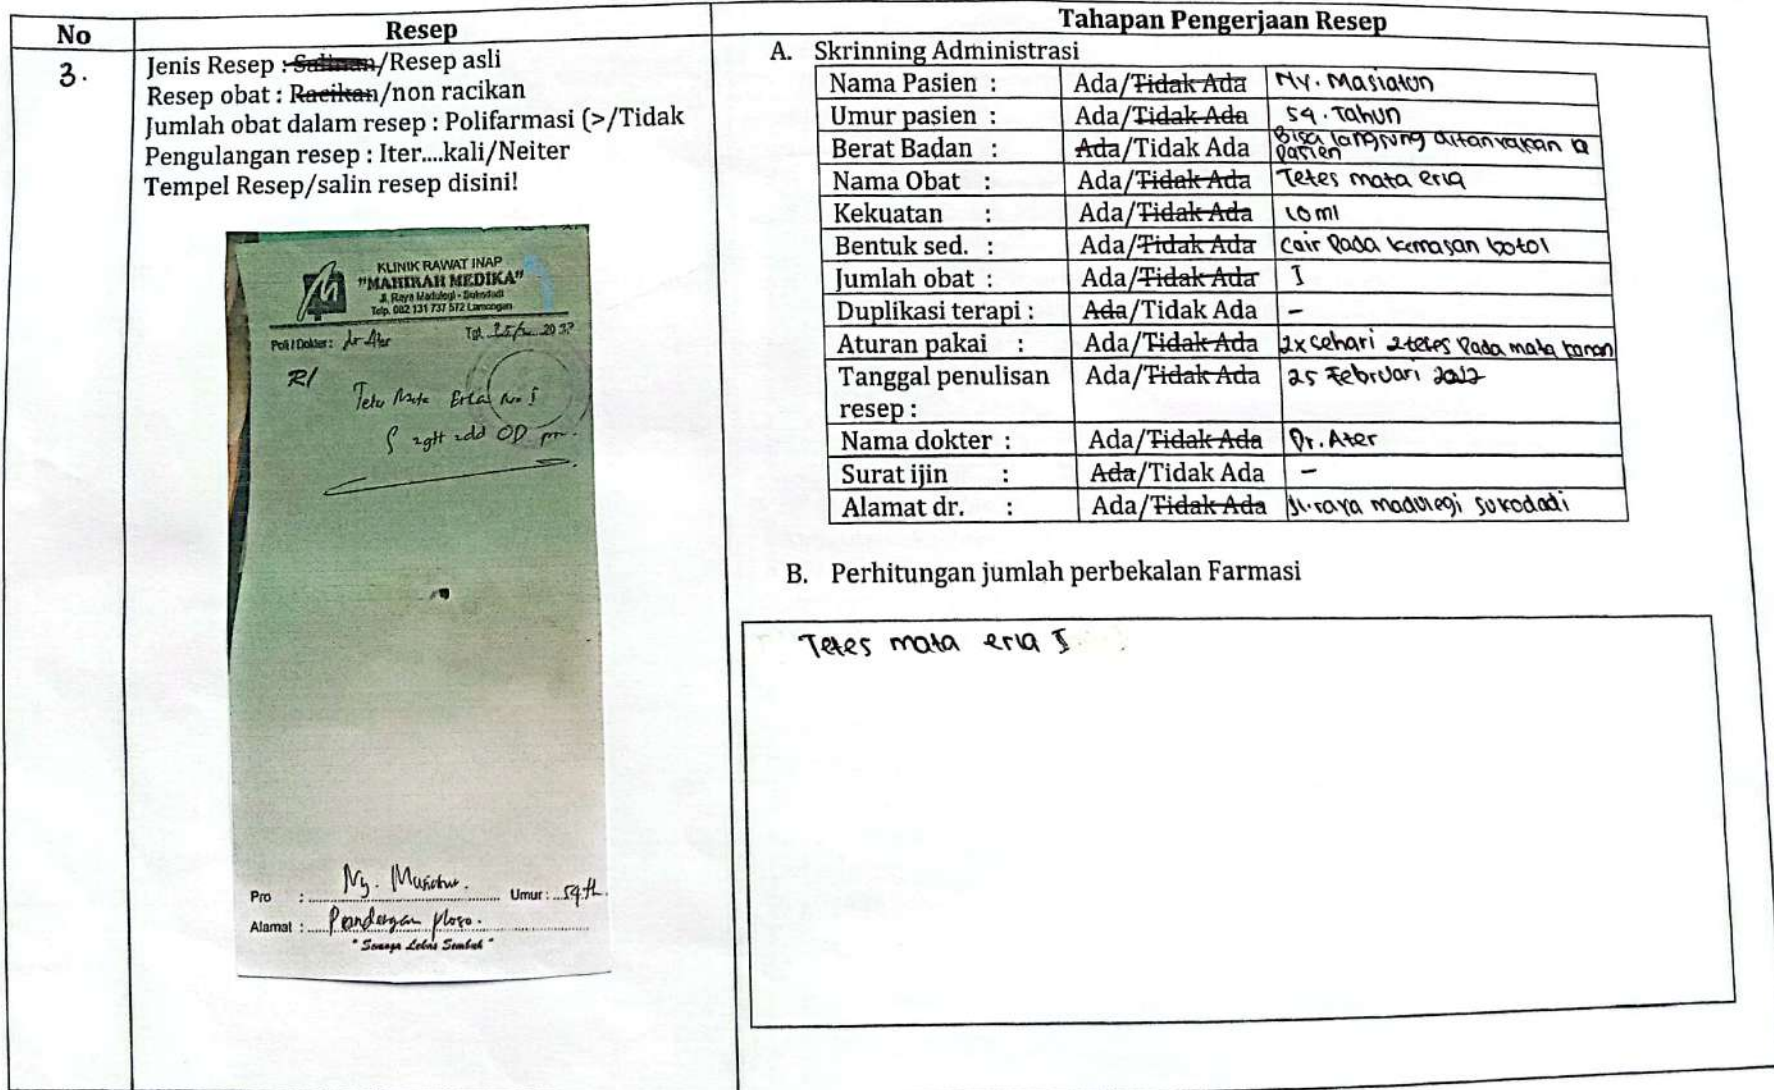 No
Resep
Tahapan Pengerjaan Resep
3.
Jenis Resep : Salinan/Resep asli
Resep obat : Racikan/non racikan
Jumlah obat dalam resep : Polifarmasi (>/Tidak
Pengulangan resep : Iter....kali/Neiter
Tempel Resep/salin resep disini!
KLINIK RAWAT INAP
"MAHIRAH MEDIKA"
Jl. Raya Madulegi - Sukodadi
Telp. 082 131 737 572 Lamongan
Poli / Dokter : dr Ater
Tgl. 25/ 20
R/
Tetes Mata Erla No I
S 2gtt 2dd OD
Pro : Ny. Umur : 59 th
Alamat :
A. Skrinning Administrasi
Nama Pasien : Ada/Tidak Ada Ny. Masiatun
Umur pasien : Ada/Tidak Ada 59. Tahun
Berat Badan : Ada/Tidak Ada Bisa langsung ditanyakan Pasien
Nama Obat : Ada/Tidak Ada Tetes mata erla
Kekuatan : Ada/Tidak Ada 10 ml
Bentuk sed. : Ada/Tidak Ada Cair Pada kemasan botol
Jumlah obat : Ada/Tidak Ada I
Duplikasi terapi : Ada/Tidak Ada -
Aturan pakai : Ada/Tidak Ada 2x sehari 2 tetes Pada mata kanan
Tanggal penulisan Ada/Tidak Ada 25 Februari 2022
resep :
Nama dokter : Ada/Tidak Ada Dr. Ater
Surat ijin : Ada/Tidak Ada -
Alamat dr. : Ada/Tidak Ada Jl. raya madulegi sukodadi
B. Perhitungan jumlah perbekalan Farmasi
Tetes mata erla I